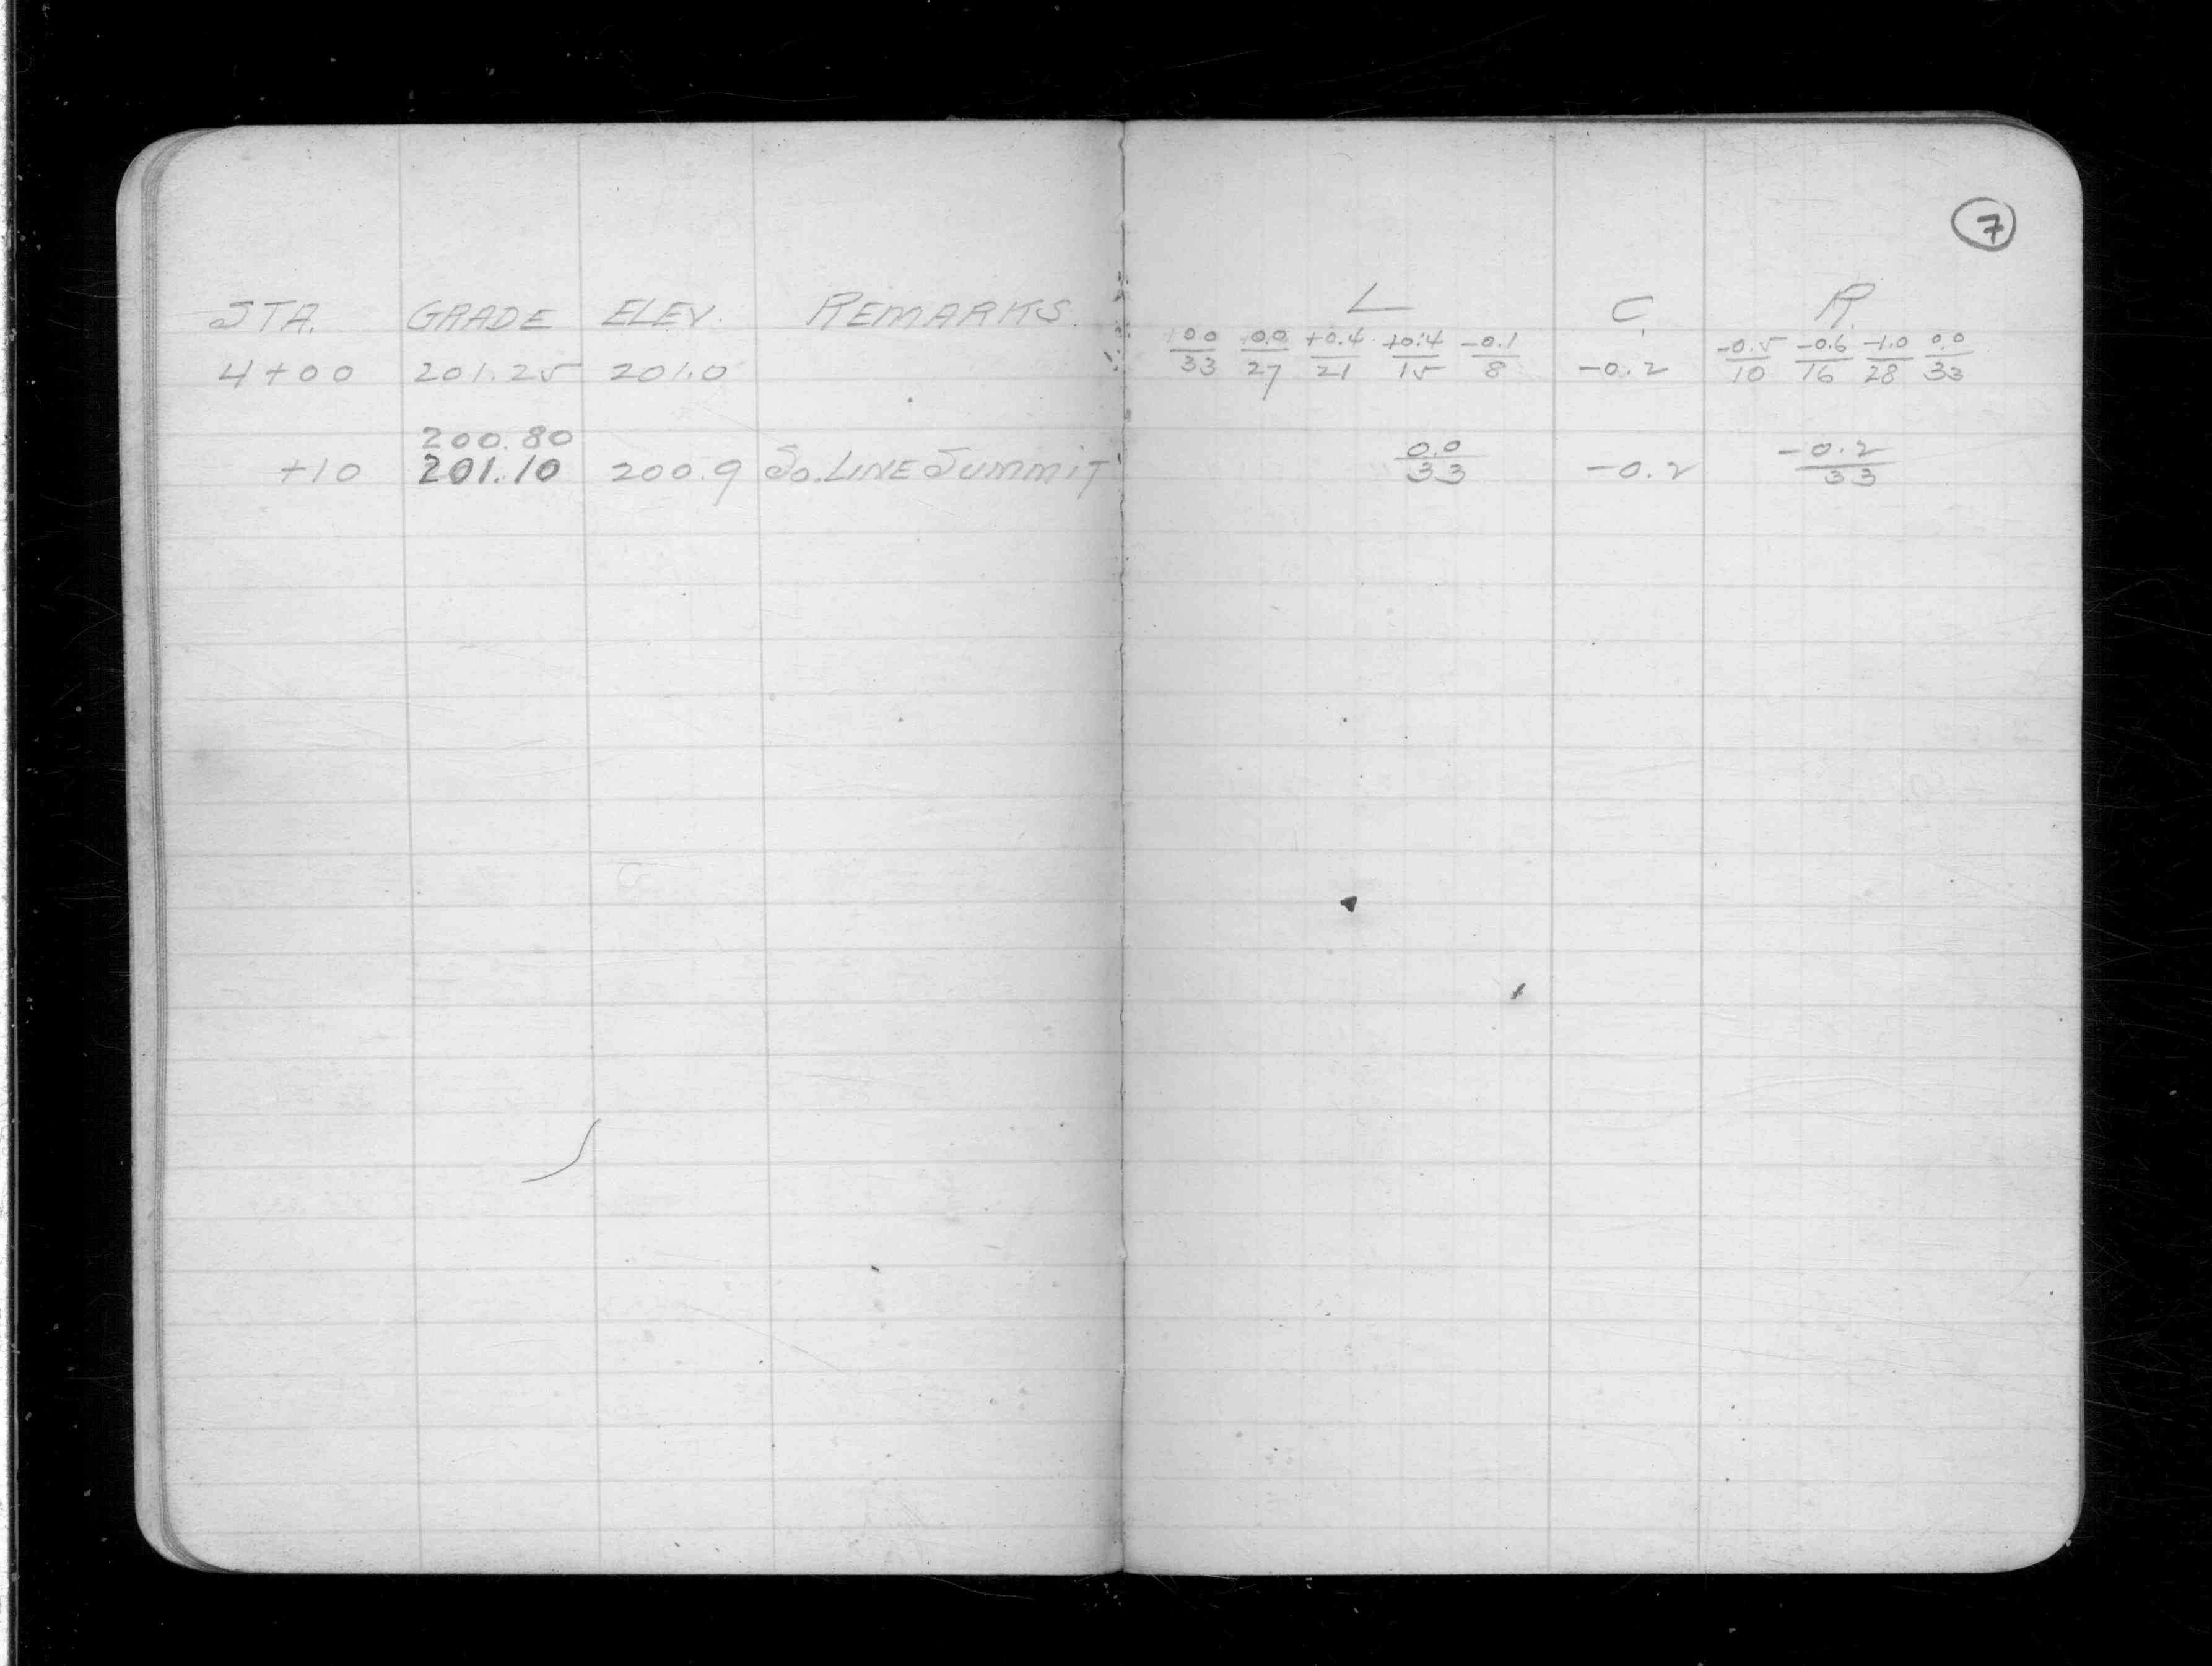 7
STA. GRADE ELEV. REMARKS L C R
+0.0 +0.0 +0.4 +0.4 -0.1 -0.5 -0.6 -1.0 0.0
4+00 201.25 201.0 33 27 21 15 8 -0.2 10 16 28 33
200.80 0.0 -0.2
+10 201.10 200.9 So. LINE SUMMIT 33 -0.2 33